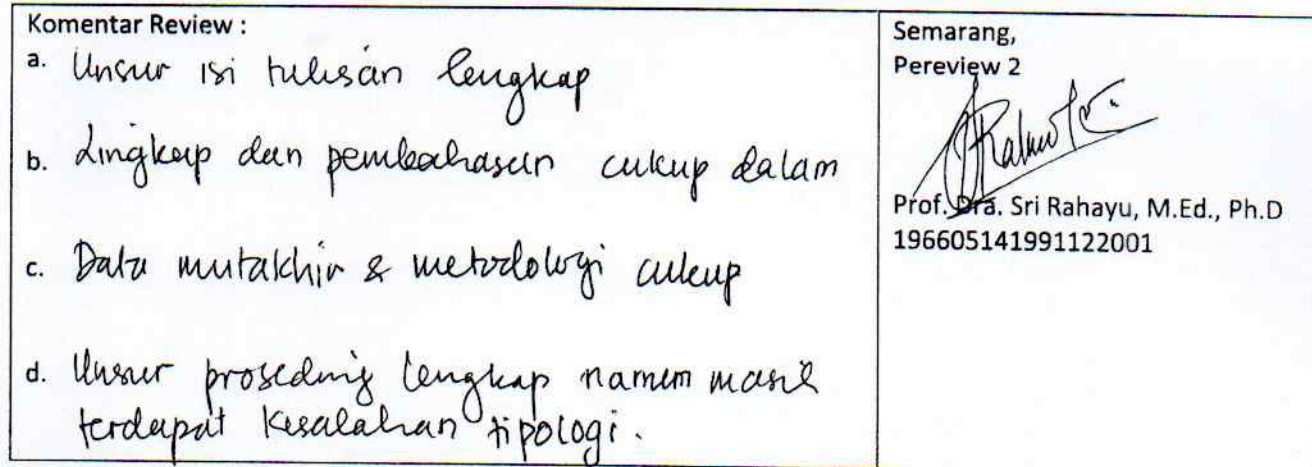 Komentar Review :
a. Unsur isi tulisan lengkap
b. Lingkup dan pembahasan cukup dalam
c. Data mutakhir & metodologi cukup
d. Unsur proseding lengkap namun masih
terdapat kesalahan tipologi.
Semarang,
Pereview 2
Prof. Dra. Sri Rahayu, M.Ed., Ph.D
196605141991122001